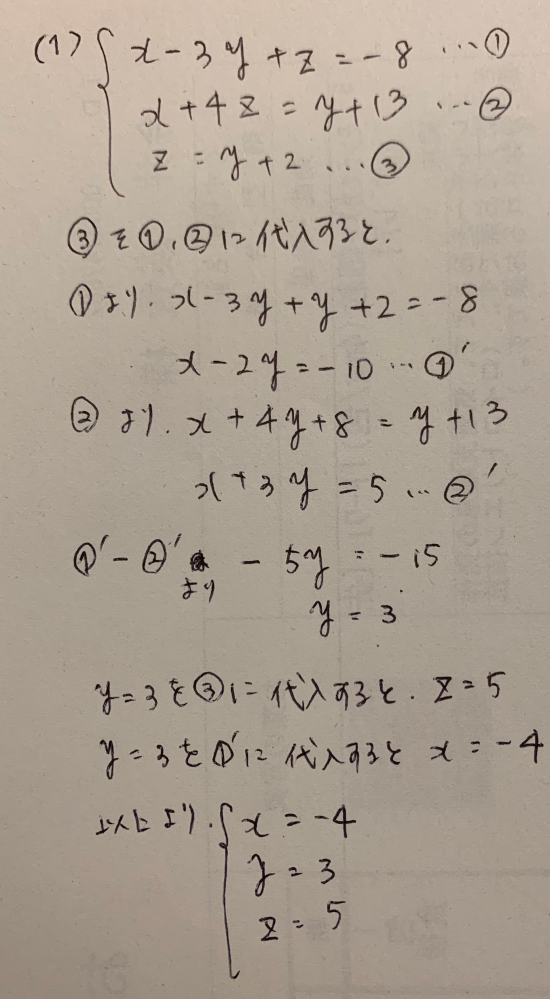 (1) x - 3y + z = -8 … ①
x + 4z = y + 13 … ②
z = y + 2 … ③
③を①,②に代入すると.
①より. x - 3y + y + 2 = -8
x - 2y = -10 … ①′
②より. x + 4y + 8 = y + 13
x + 3y = 5 … ②′
①′ - ②′ より - 5y = -15
y = 3
y = 3を③に代入すると. z = 5
y = 3を①′に代入すると x = -4
以上より. x = -4
y = 3
z = 5